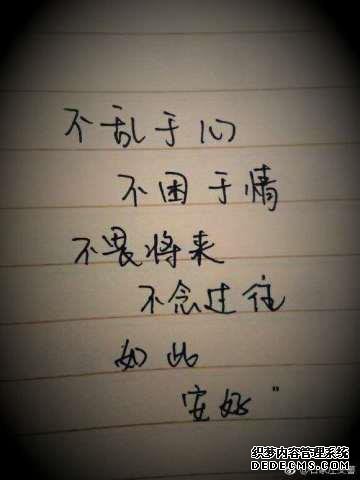 不乱于心
不困于情
不畏将来
不念过往
如此
安好"
织梦内容管理系统
DEDECMS.COM